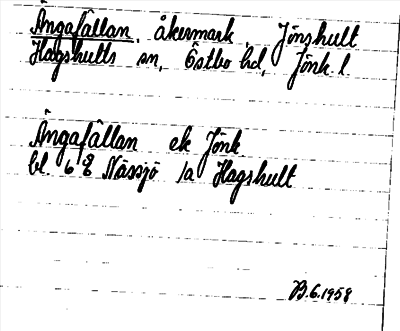 Ängafällan, åkermark, Jönshult
Hagshults sn, Östbo hd, Jönk. l.
Ängafällan ek Jönk
bl. 6 8 Nässjö 1a Hagshult
B.6.1958